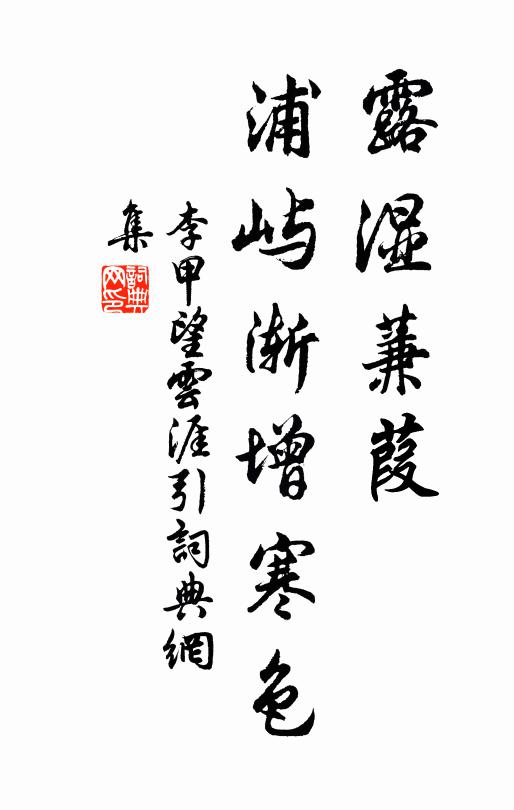 露湿蒹葭
浦屿渐增寒色
李甲望雲涯引詞典網
集
詞典网印